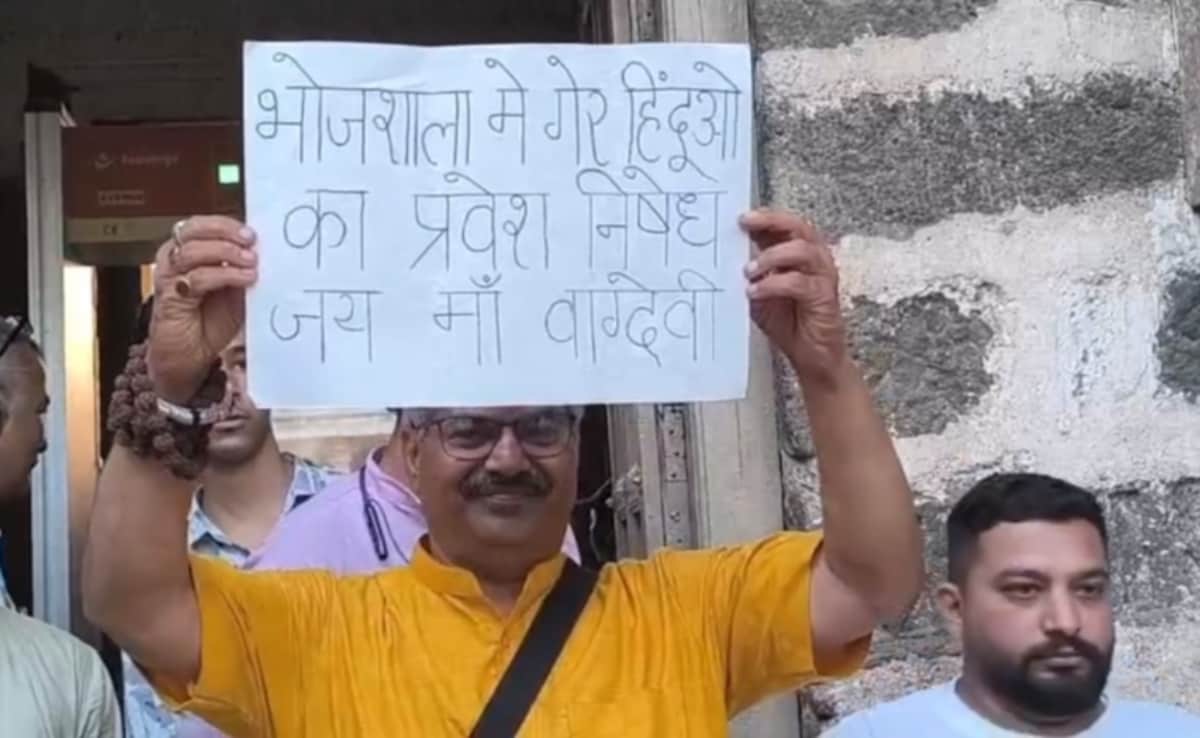 भोजशाला मे गेर हिंदूओ
का प्रवेश निषेध
जय माँ वाग्देवी
CE